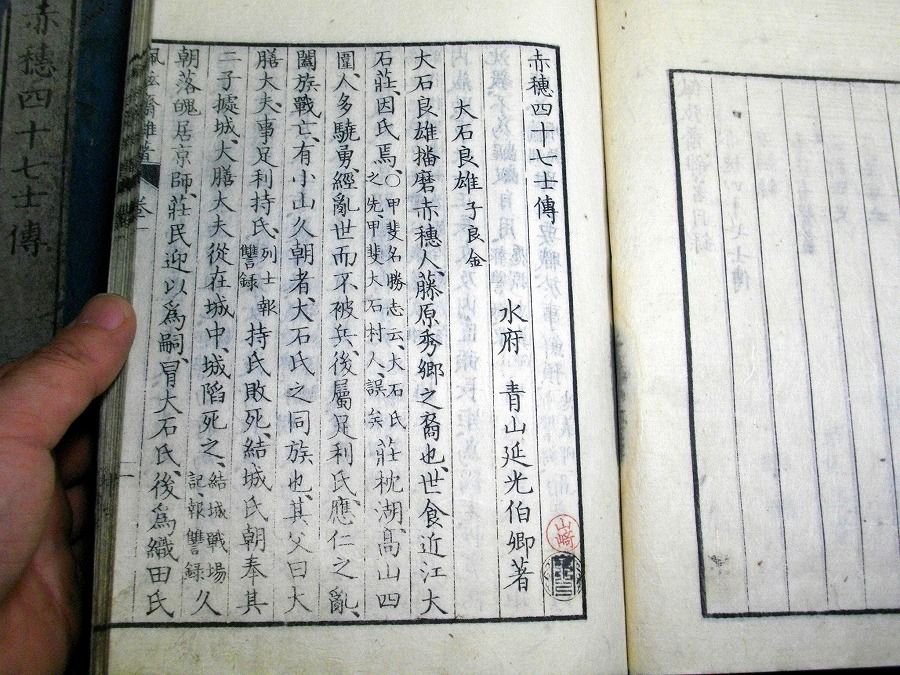 赤穗四十七士傳
水府 青山延光伯卿著
山崎
大石良雄 子良金
大石良雄播磨赤穗人、藤原秀鄉之裔也、世食近江大
石莊、因氏焉、〇甲斐名勝志云、大石氏之先、甲斐大石村人、誤矣莊枕湖、高山四
圍、人多驍勇、經亂世而不被兵、後屬足利氏、應仁之亂、
闔族戰亡、有小山久朝者、大石氏之同族也、其父曰大
膳大夫、事足利持氏、列士報讐錄持氏敗死、結城氏朝奉其
二子據城、大膳大夫從在城中、城陷死之、結城戰場記、報讐錄久
朝落魄居京師、莊民迎以爲嗣、冒大石氏、後爲織田氏
齋雜著 卷一
赤穗四十七士傳